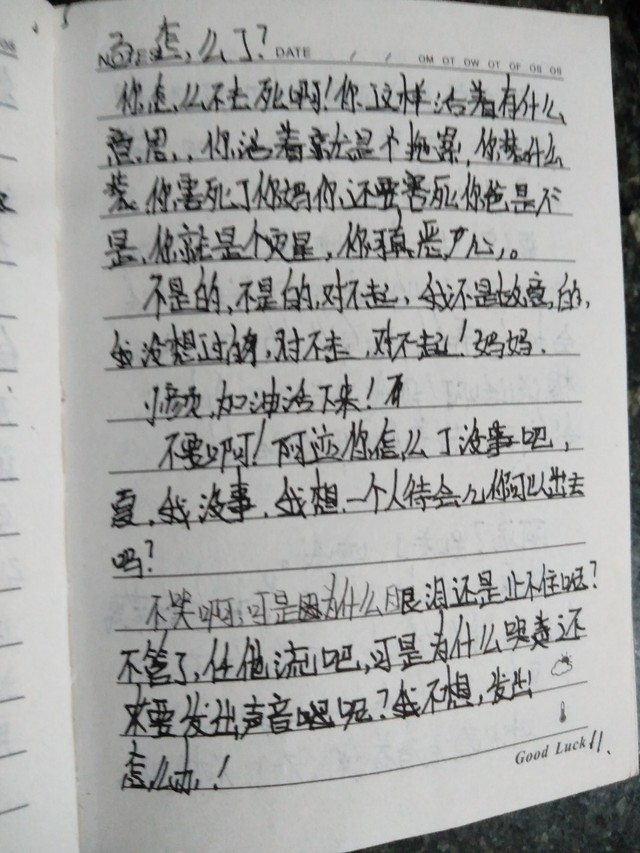 怎么了?
NOTES DATE / /
OM OT OW OT OF OS OS
你怎么不去死啊!你这样活着有什么
意思,你活着就是个拖累,你装什么
装,你害死了你妈你还要害死你爸是不
是,你就是个灾星,你可真恶心。
不是的,不是的,对不起,我不是故意的,
我没想过的,对不起,对不起!妈妈.
加油活下来!
不要啊!阿 你怎么了没事吧,
夏,我没事,我想一个人待会儿你可以出去
吗?
不哭啊,可是为什么眼泪还是止不住呢?
不管了,任他流吧,可是为什么哭着还
要发出声音呢?我不想,发出
怎么办!
Good Luck!